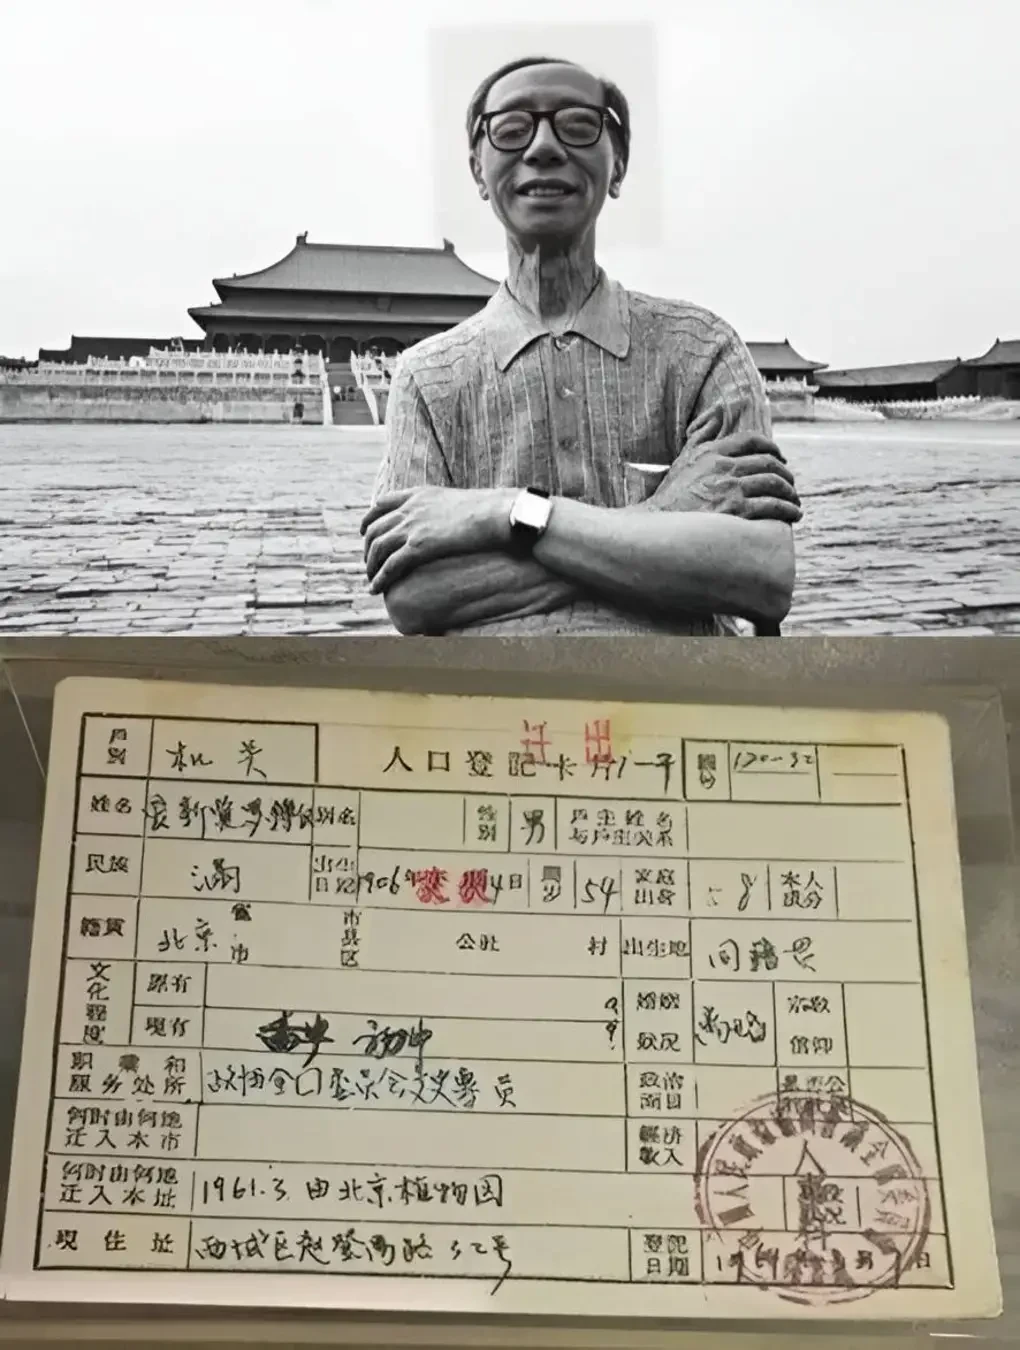 迁出
户别 机关 人口登记卡片
姓名 爱新觉罗溥仪 别名 性别 男 户主姓名与户主关系
民族 满 出生日期 1906年 4日 周岁 54 家庭出身 本人成分
籍贯 北京 省市 市县区 公社 村 出生地 同籍贯
文化程度 原有 婚姻状况 宗教信仰
现有 初中
职业和服务处所 政协全国委员会文史专员 政治面目
何时由何地迁入本市 经济收入
何时由何地迁入本址 1961.3 由北京植物园
现住址 西城区赵登禹路32号 登记日期